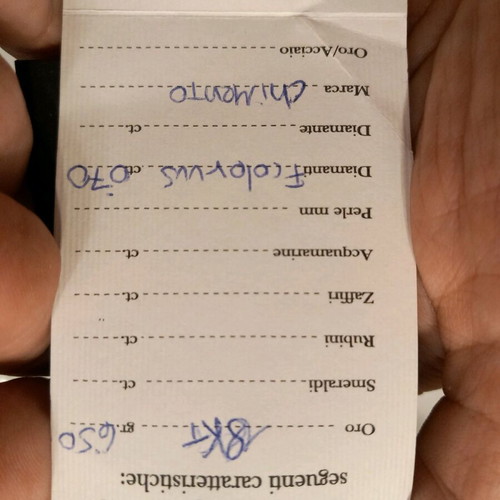 seguenti caratteristiche:
Oro 18KT gr. 650
Smeraldi ct.
Rubini ct.
Zaffiri ct.
Acquamarine ct.
Perle mm
Diamanti F color VVS ct. 070
Diamante ct.
Marca CHIMENTO
Oro/Acciaio